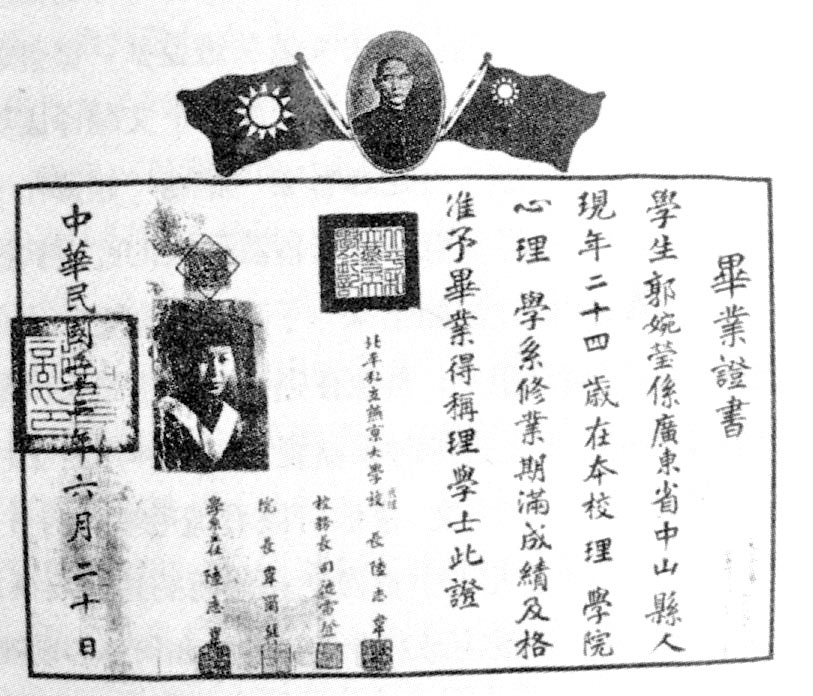 畢業證書
學生郭婉瑩係廣東省中山縣人
現年二十四歲在本校理學院
心理學系修業期滿成績及格
准予畢業得稱理學士此證
北平私立燕京大學校長陸志韋
校務長司徒雷登
院長韋爾巽
學系主任陸志韋
中華民國 年六月二十日